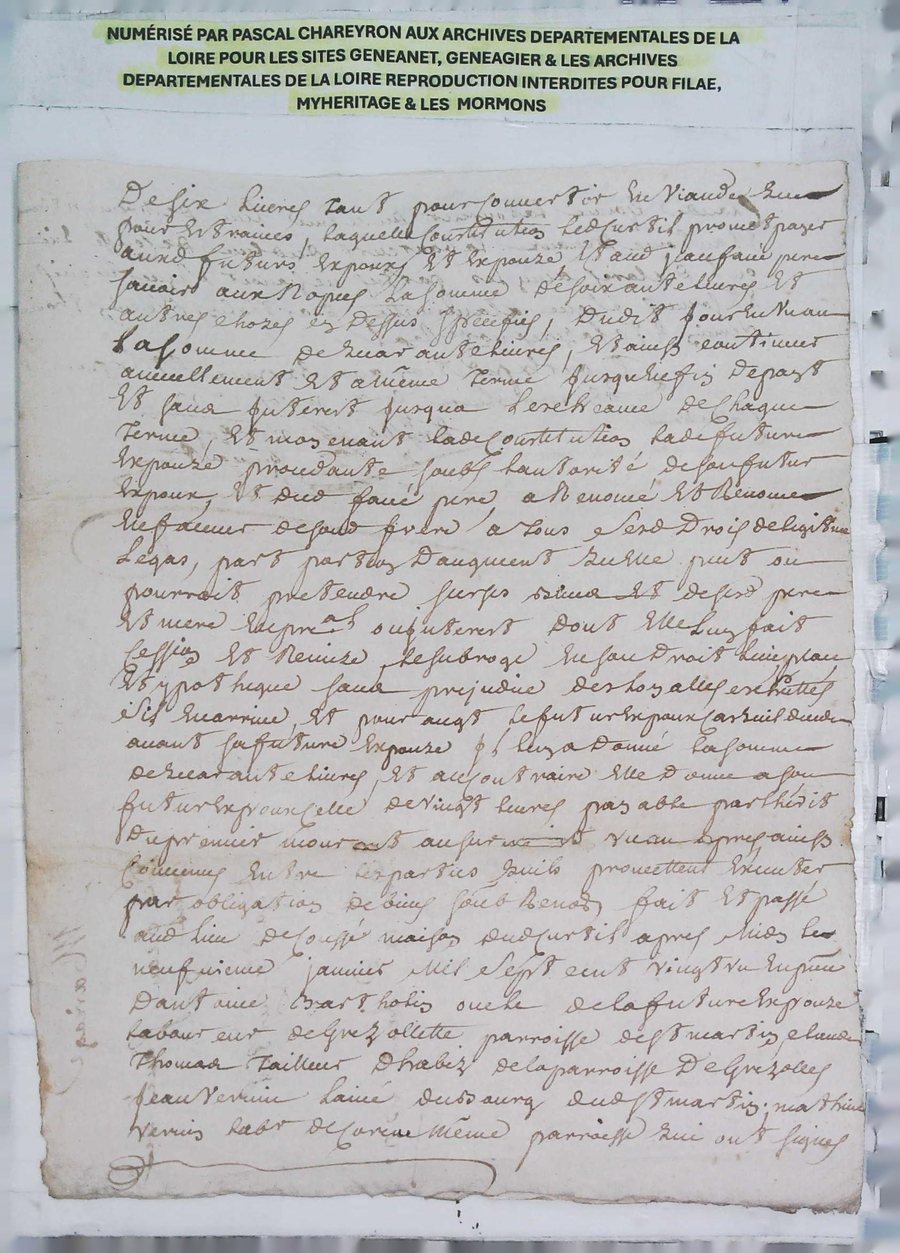 NUMÉRISÉ PAR PASCAL CHAREYRON AUX ARCHIVES DEPARTEMENTALES DE LA
LOIRE POUR LES SITES GENEANET, GENEAGIER & LES ARCHIVES
DEPARTEMENTALES DE LA LOIRE REPRODUCTION INTERDITES POUR FILAE,
MYHERITAGE & LES MORMONS
De six livres tant pour convertir en viande que
pour etraines, laquelle Constitution ledcurtil promet payer
auxd futurs expoux et expouze et aud faure pere
scavoir aux Nopces la somme de soixante livres et
autres chozes cy dessus speciffies, dudit jour en un an
la somme de quarante livres, et ainsy continuer
annuellement et a même terme jusqu en fin de payt
et sans interest jusqua lescheance de chaque
terme, et moyenant lade Constitution lade future
expouze procedante soubs lautorité de son futur
expoux, et dud pere, a Renoncé et Renonce
en faveur de sond frere a tous sesd Droits de legitime
Legas, part portion Daugment quelle peut ou
pourroit pretendre sur les biens et desesd pere
et mere en pral ou interest dont elle luy fait
Cession et Remize, le subroge en son Droit lieu place
et ypotheque sans prejudice des loyalles escheuttes
s'il en arrive, et pour augt le futur expoux
avant sa future expouze il luy a donné la somme
de quarante livres, et au contraire elle donne a son
futur expoux celle de vingt livres payable par lhérit
du premier mourant au survivant un an apres ainsy
Convenu entre les parties quils promettent executer
par obligation de biens soub Renons fait et passé
aud lieu de maison dudcurtil apres midy le
neufvieme janvier mil sept cent vingt un en prece
Dantoine Bartholin oncle de la future expouze
laboureur de Grezollette parroisse de st martin, claude
Thomas Tailleur Dhabiz de la parroisse De Grezolles
jean Vernin lainé du Bourg dud st martin, mathieu
vernin labr de même parroisse qui ont signés